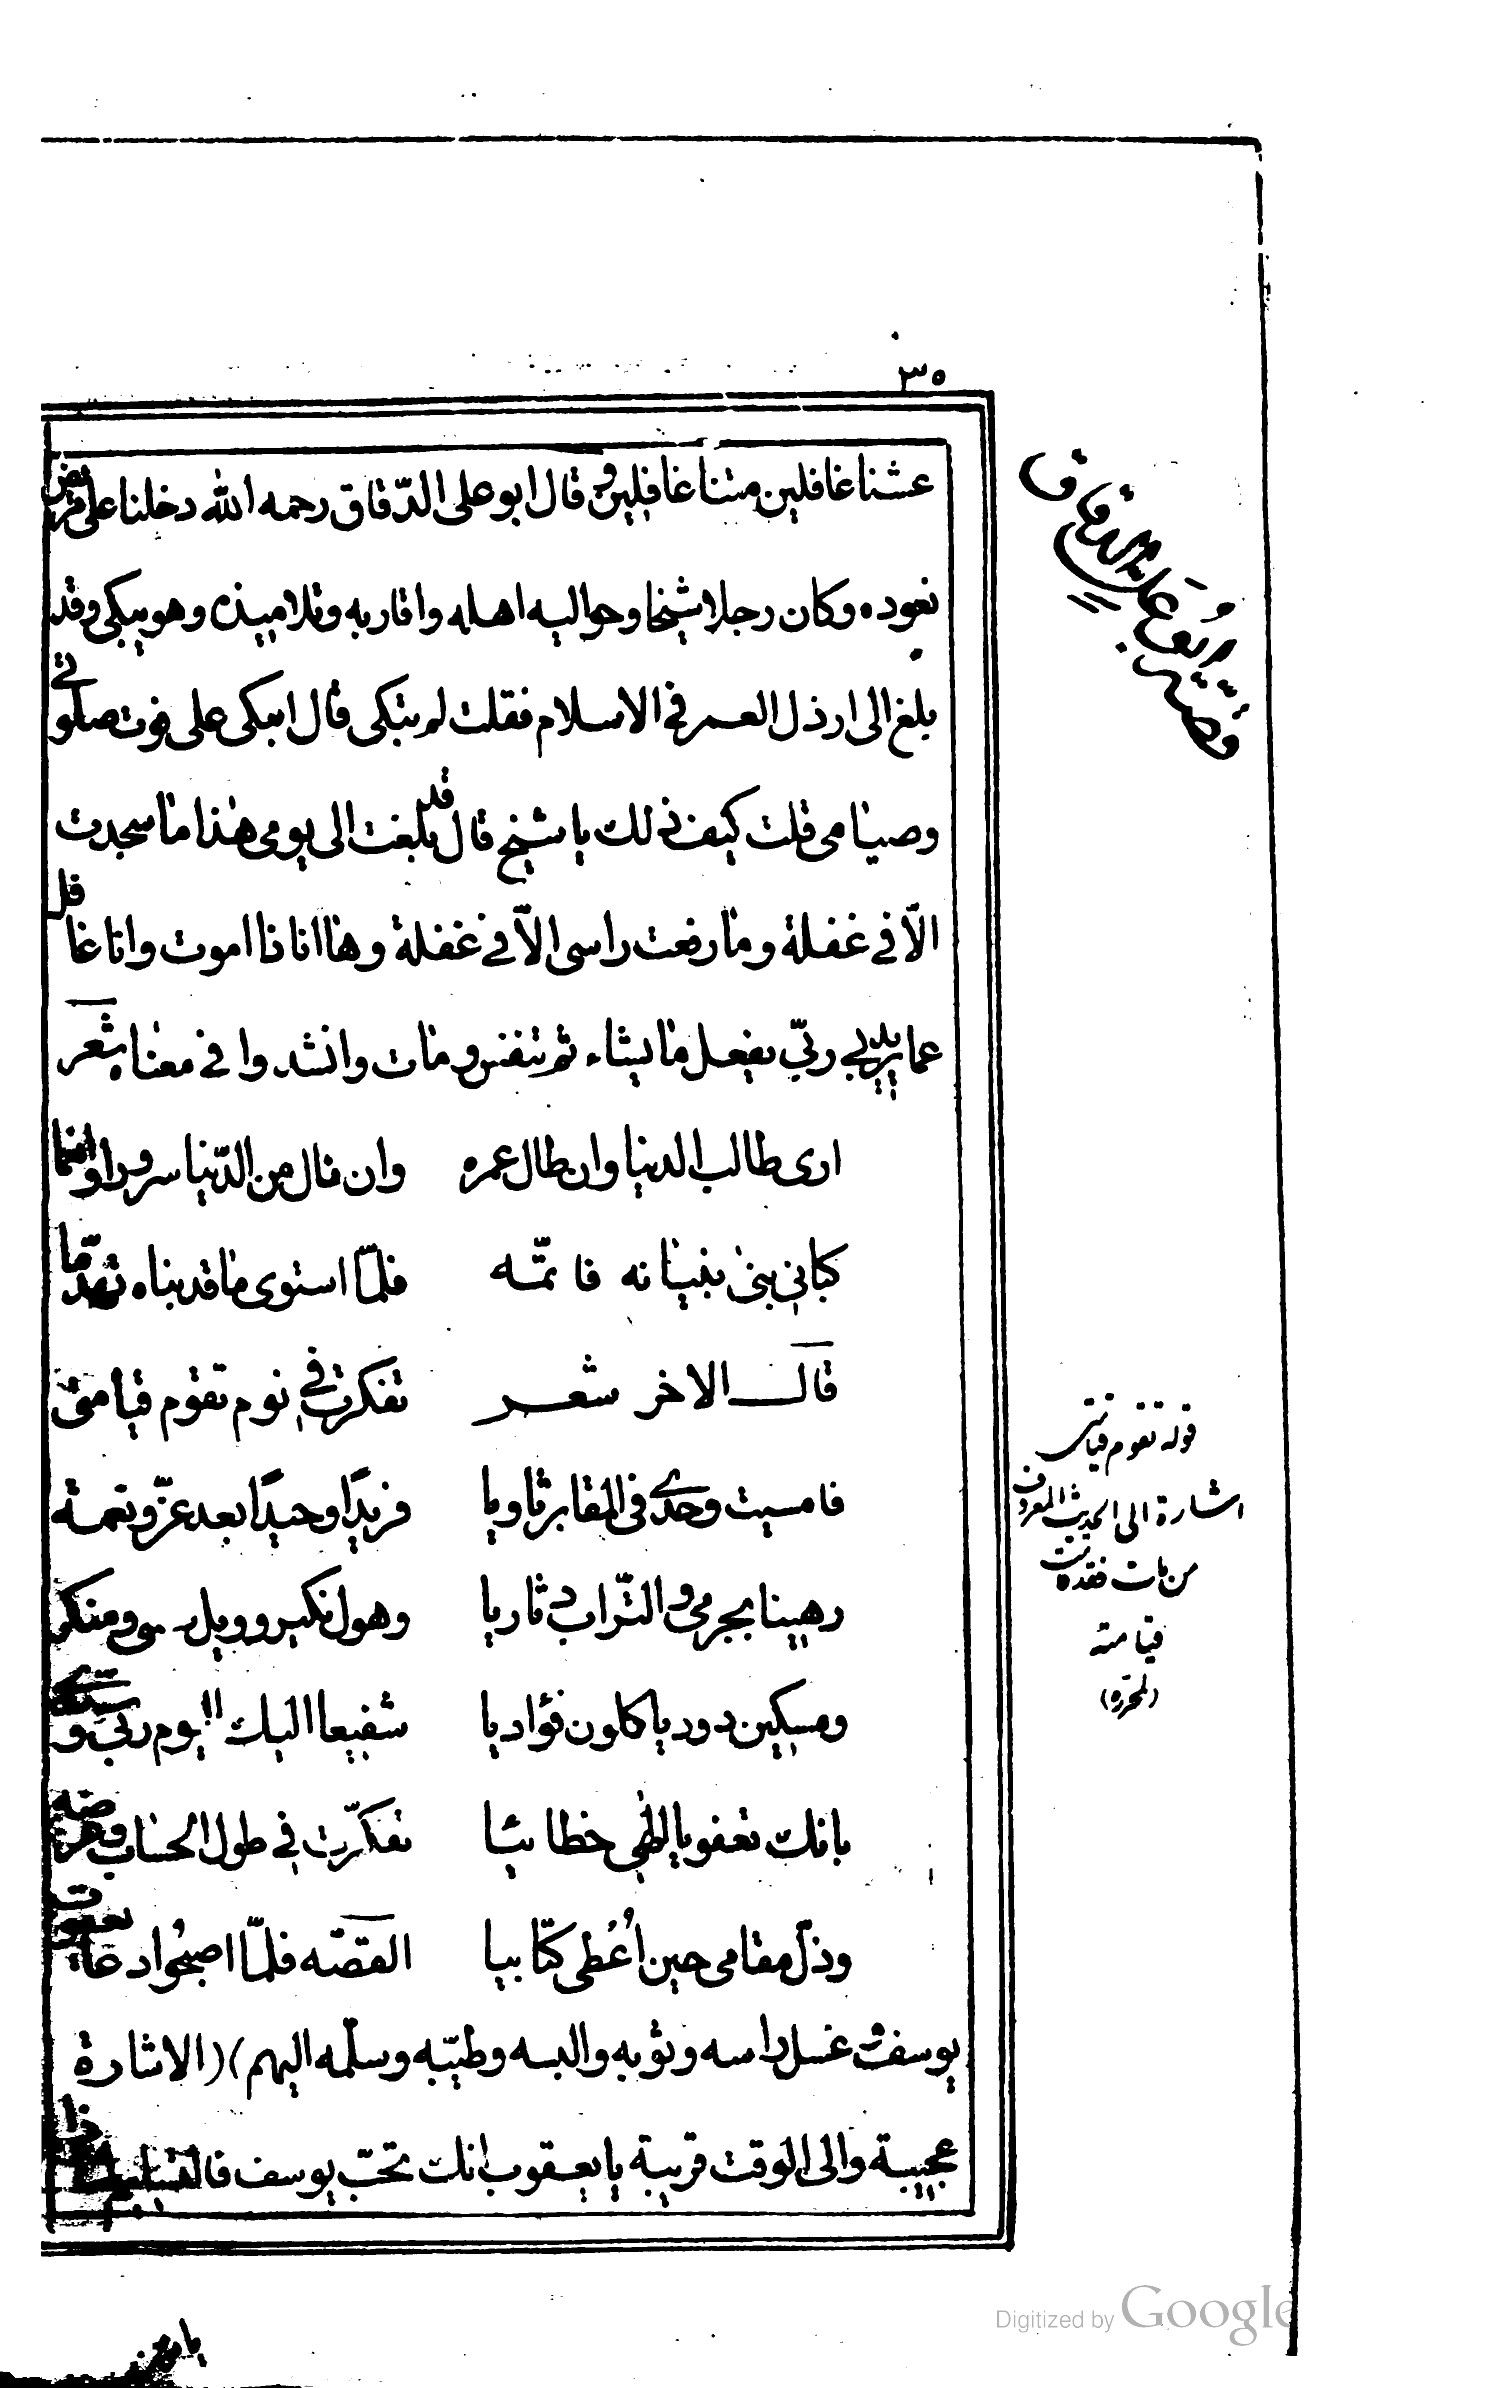 ٣٥
عشنا غافلين متنا غافلين وقال ابو على الدّقاق رحمه الله دخلنا على مريض
نعوده وكان رجلا شيخا وحواليه اهله واقاربه وتلاميذه وهو يبكى وقد
بلغ الى ارذل العمر فى الاسلام فقلت لم تبكى قال ابكى على فوت صلوتى
وصيامى قلت كيف ذلك يا شيخ قال قد بلغت الى يومى هذا ما سجدت
الّا فى غفلة وما رفعت راسى الّا فى غفلة وها انا ذا اموت وانا غافل
عما يريد بى ربّى يفعل ما يشاء ثم تنفس ومات وانشدوا فى معناه شعر
ارى طالب الدنيا وان طال عمره وان نال من الدّنيا سرورا وانعما
كبانى بنى بنيانه فاتمّه فلمّا استوى ما قد بناه تهدّما
قال الاخر شعر تفكرت فى يوم تقوم قيامتى
فامسيت وحدى فى المقابر ثاويا فريدًا وحيدًا بعد عزّ ونعمة
رهينا بجرمى والتّراب دثاريا وهول نكير وويل سى ومنكر
ومسكين دود ياكلون فؤاديا شفيعا اليك اليوم ربّى و
بانك تعفو يا الهى خطائيا تفكرّت فى طول الحساب وعرضه
وذلّ مقامى حين اُعُطى كتابيا القصّه فلمّا اصبحوا دعا يعقوب
يوسف غسل راسه وثوبه والبسه وطيّبه وسلّمه اليهم) (الاشارة
عجيبة والى الوقت قريبة يا يعقوب انك تحبّ يوسف
قصّة ابو على الدقاق
قوله تقوم قيامتى
اشارة الى الحديث المعروف
من مات فقد قامت
قيامته
(لمحرره)
Digitized by Google